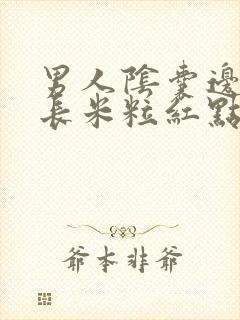 男人陰囊邊
長米粒紅點
爺本非爺